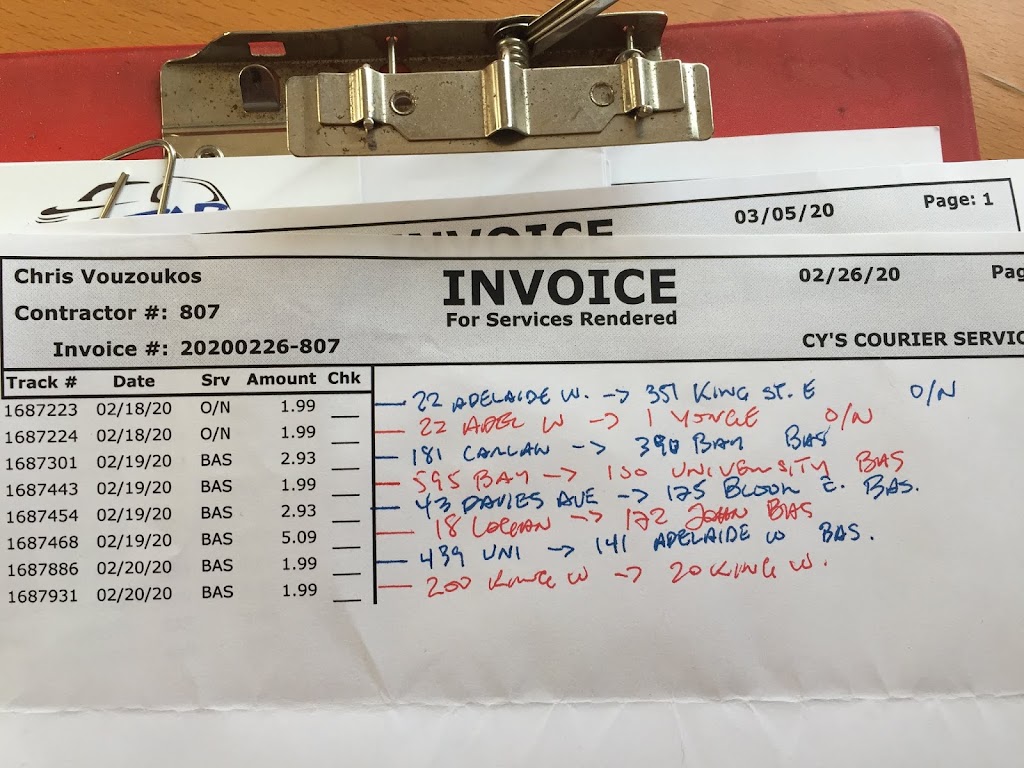 03/05/20 Page: 1
INVOICE
Chris Vouzoukos INVOICE 02/26/20 Pag
Contractor #: 807 For Services Rendered
Invoice #: 20200226-807 CY'S COURIER SERVIC
Track # Date Srv Amount Chk
1687223 02/18/20 O/N 1.99 — 22 ADELAIDE W. -> 351 KING ST. E O/N
1687224 02/18/20 O/N 1.99 — 22 ADEL W -> 1 YONGE O/N
1687301 02/19/20 BAS 2.93 — 181 CARLAW -> 390 BAY BAS
1687443 02/19/20 BAS 1.99 — 595 BAY -> 100 UNIVERSITY BAS
1687454 02/19/20 BAS 2.93 — 43 DAVIES AVE -> 175 BLOOR E. BAS.
1687468 02/19/20 BAS 5.09 — 18 LOGAN -> 172 JOHN BAS
1687886 02/20/20 BAS 1.99 — 439 UNI -> 141 ADELAIDE W BAS.
1687931 02/20/20 BAS 1.99 — 200 KING W -> 20 KING W.